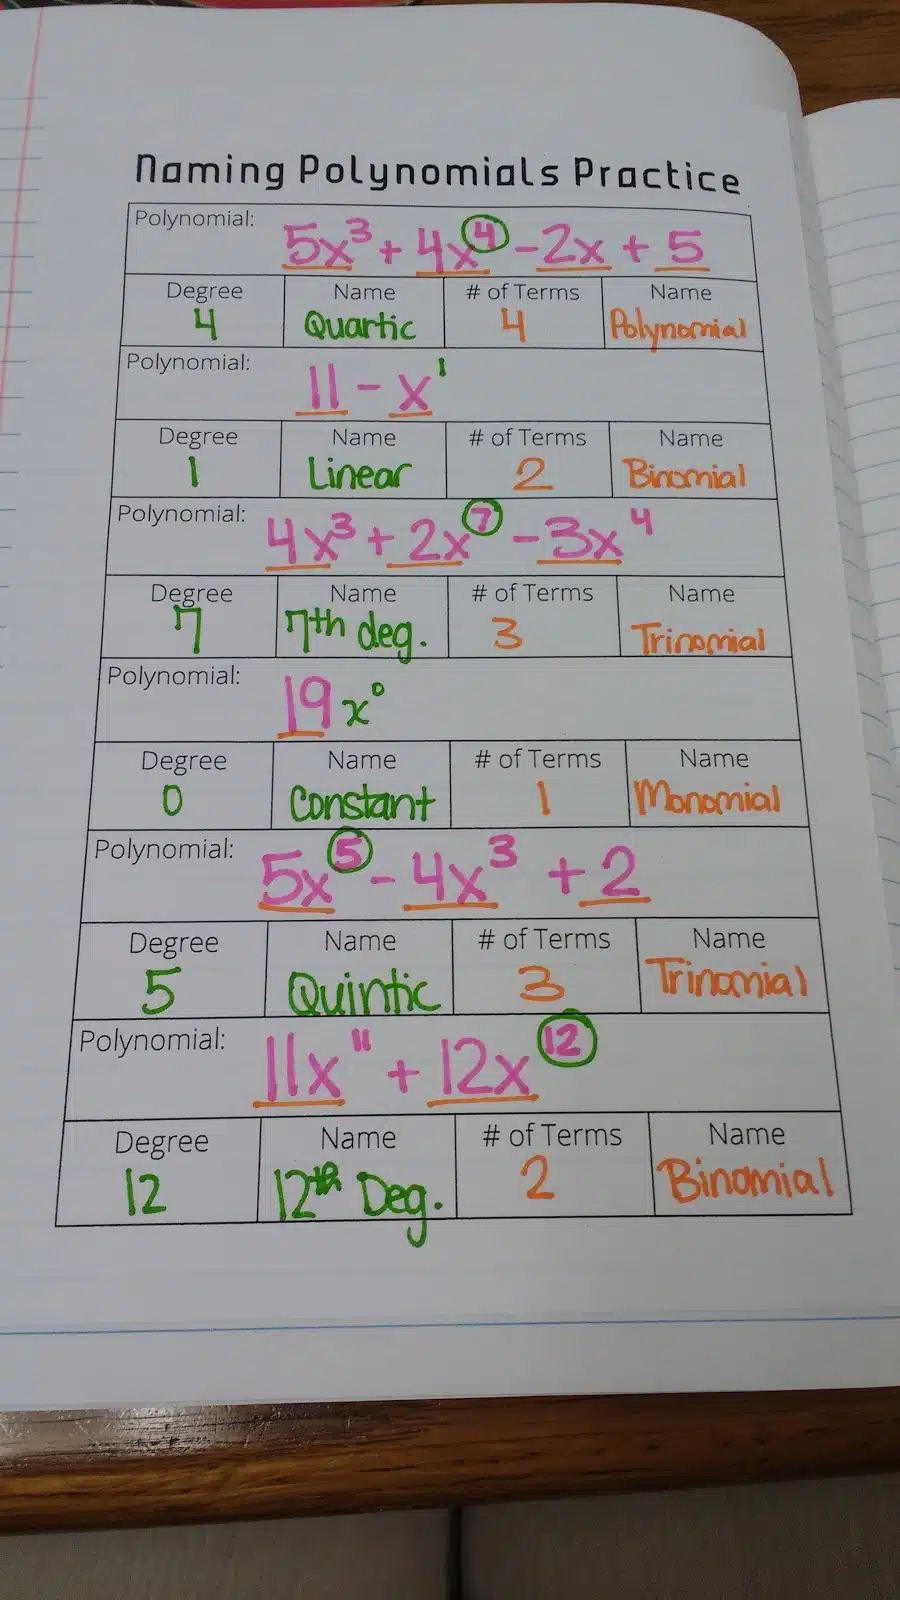 Naming Polynomials Practice
Polynomial: 5x³ + 4x⁴ - 2x + 5
Degree Name # of Terms Name
4 Quartic 4 Polynomial
Polynomial: 11 - x¹
Degree Name # of Terms Name
1 Linear 2 Binomial
Polynomial: 4x³ + 2x⁷ - 3x⁴
Degree Name # of Terms Name
7 7th deg. 3 Trinomial
Polynomial: 19x⁰
Degree Name # of Terms Name
0 Constant 1 Monomial
Polynomial: 5x⁵ - 4x³ + 2
Degree Name # of Terms Name
5 Quintic 3 Trinomial
Polynomial: 11x¹¹ + 12x¹²
Degree Name # of Terms Name
12 12th Deg. 2 Binomial